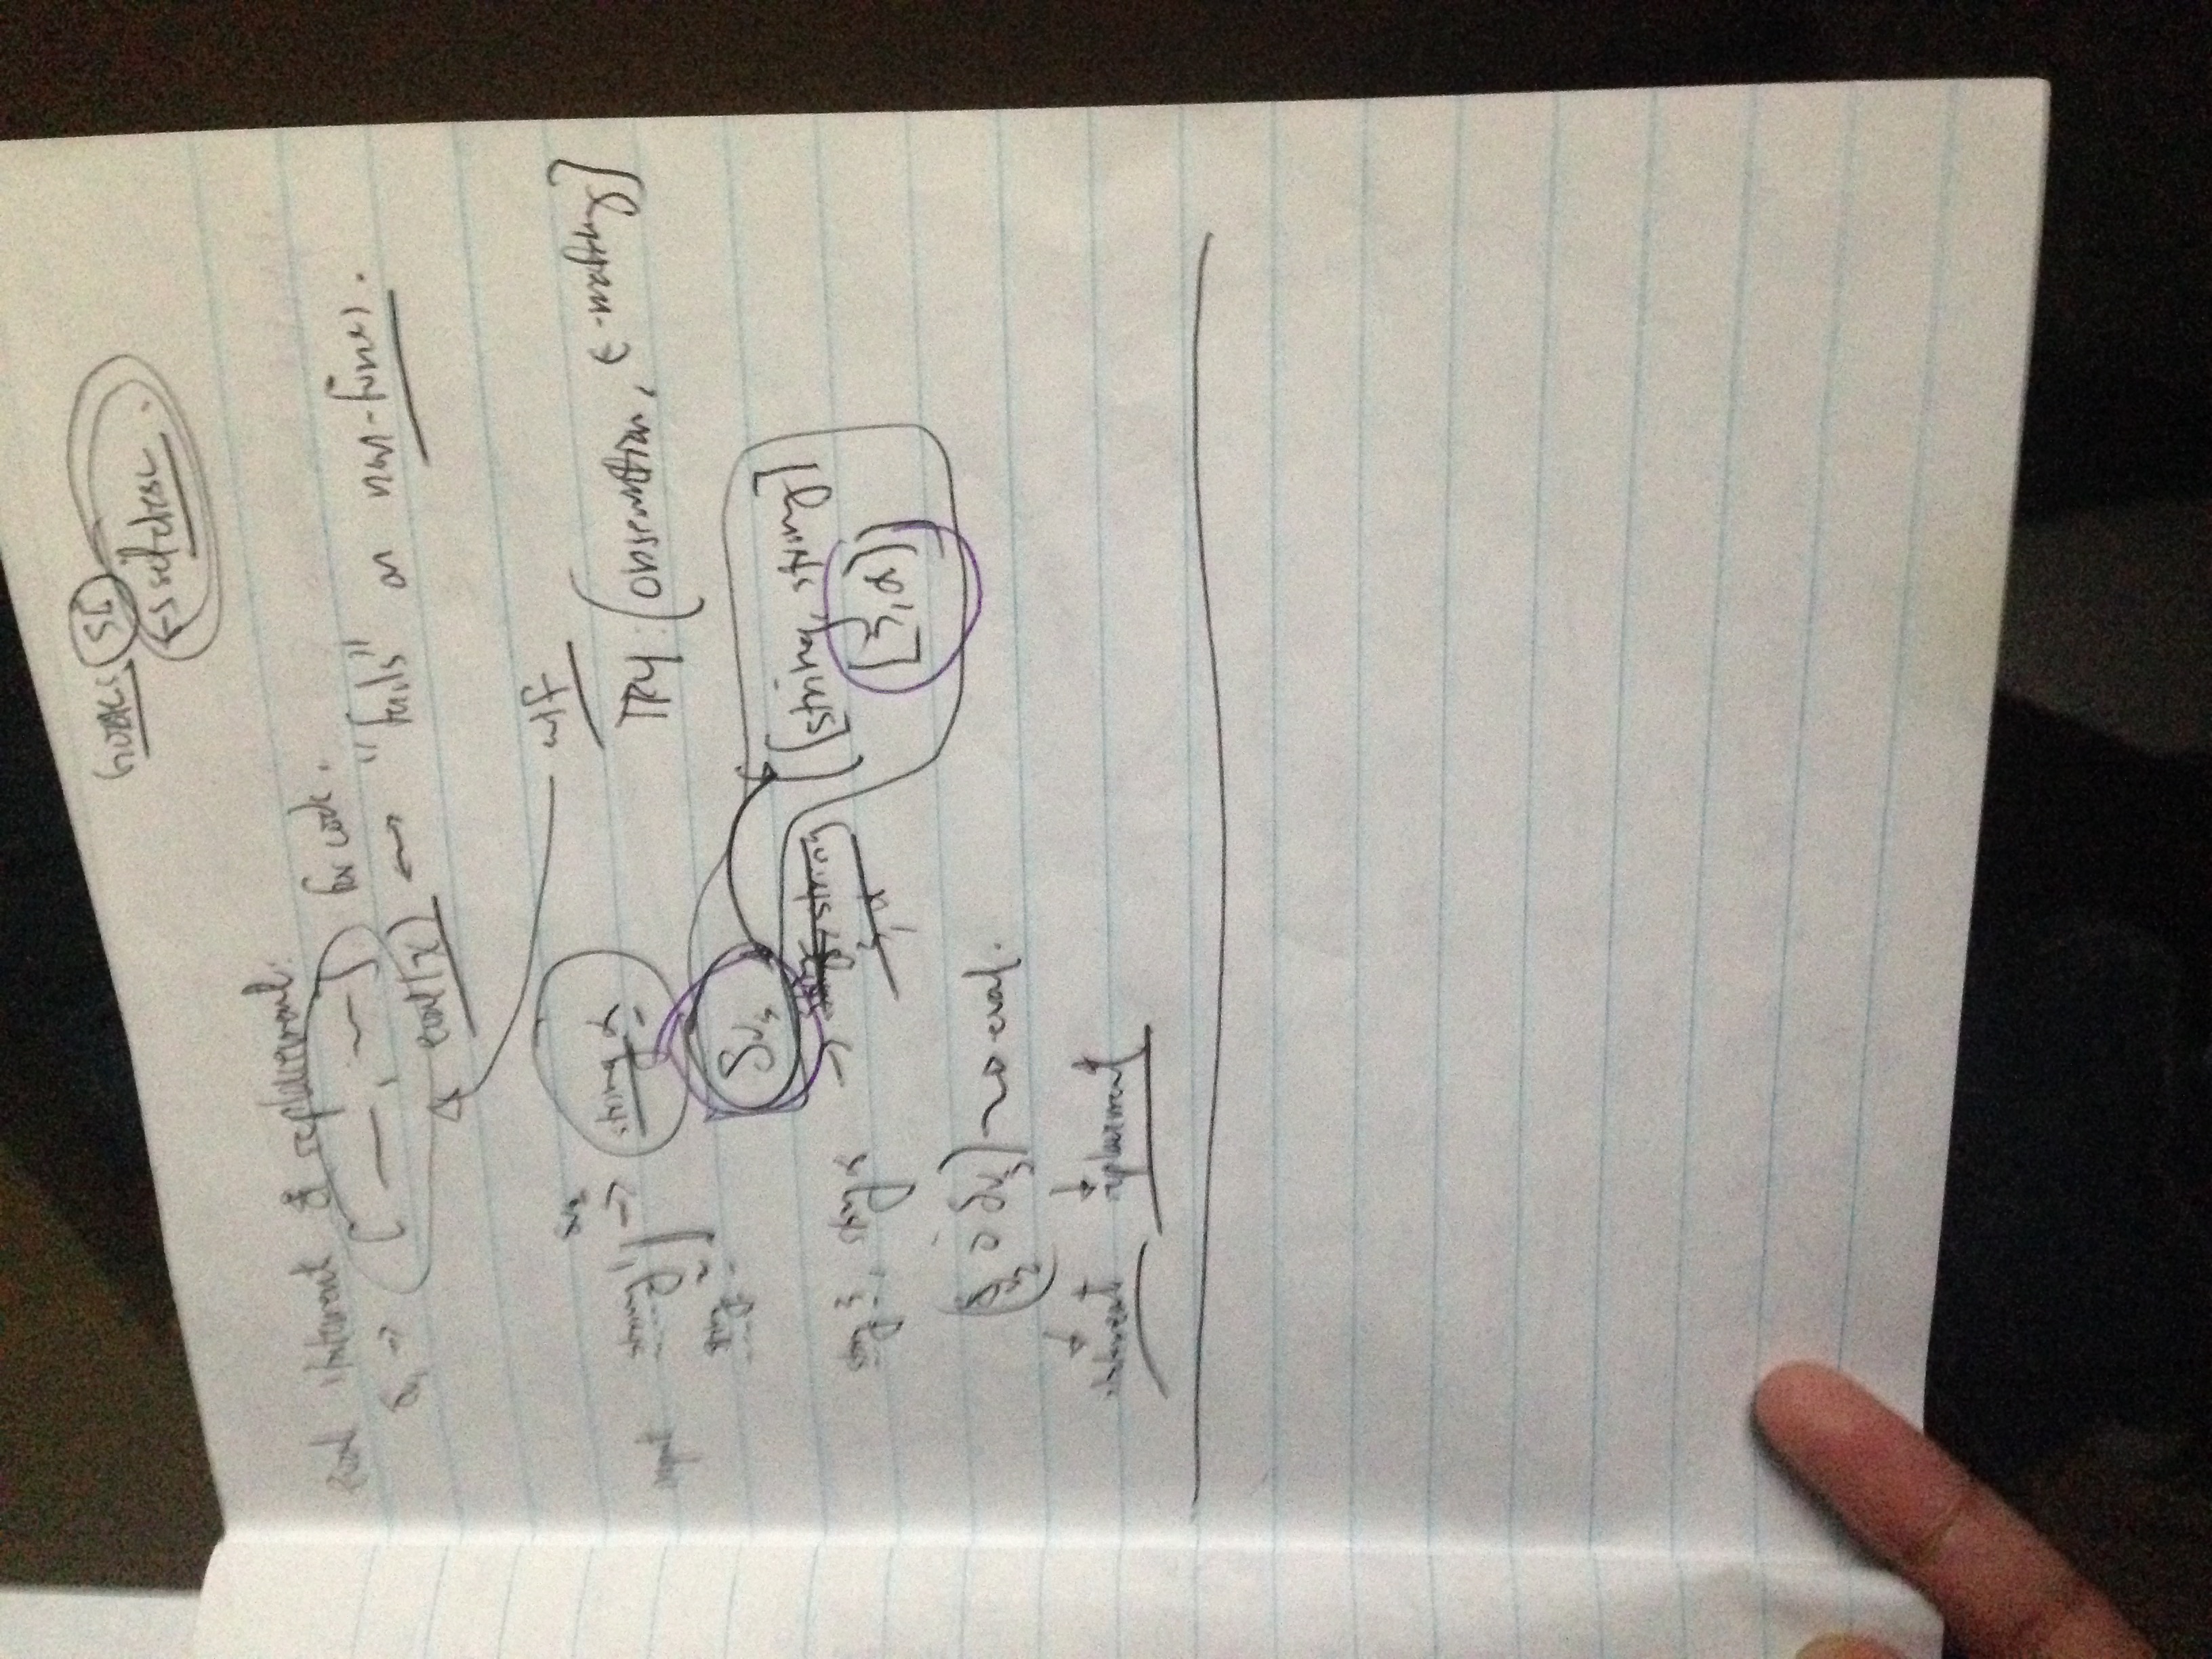 Goals: SI
↔ self desc.
eval statement & replacement.
δv₁ → [ —, — ] for code.
eval(x) ↔ "fails" on non-funcs.
w/f
TRY: [observation, ε-matching]
input string 1 δv₂ → string α
string 2
δv₃
[[string, string]
[3, α]]
string 3, string α → string, string
3, α
(δv₂ ∘ δv₃) ~> eval.
↓ ↓
statement replacement